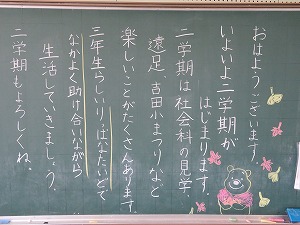 おはようございます。
いよいよ二学期が
はじまります。
二学期は社会科の見学
遠足 古田小まつりなど
楽しいことがたくさんあります。
三年生らしいりっぱなたいどで
なかよく助け合いながら
生活していきましょう。
二学期もよろしくね。